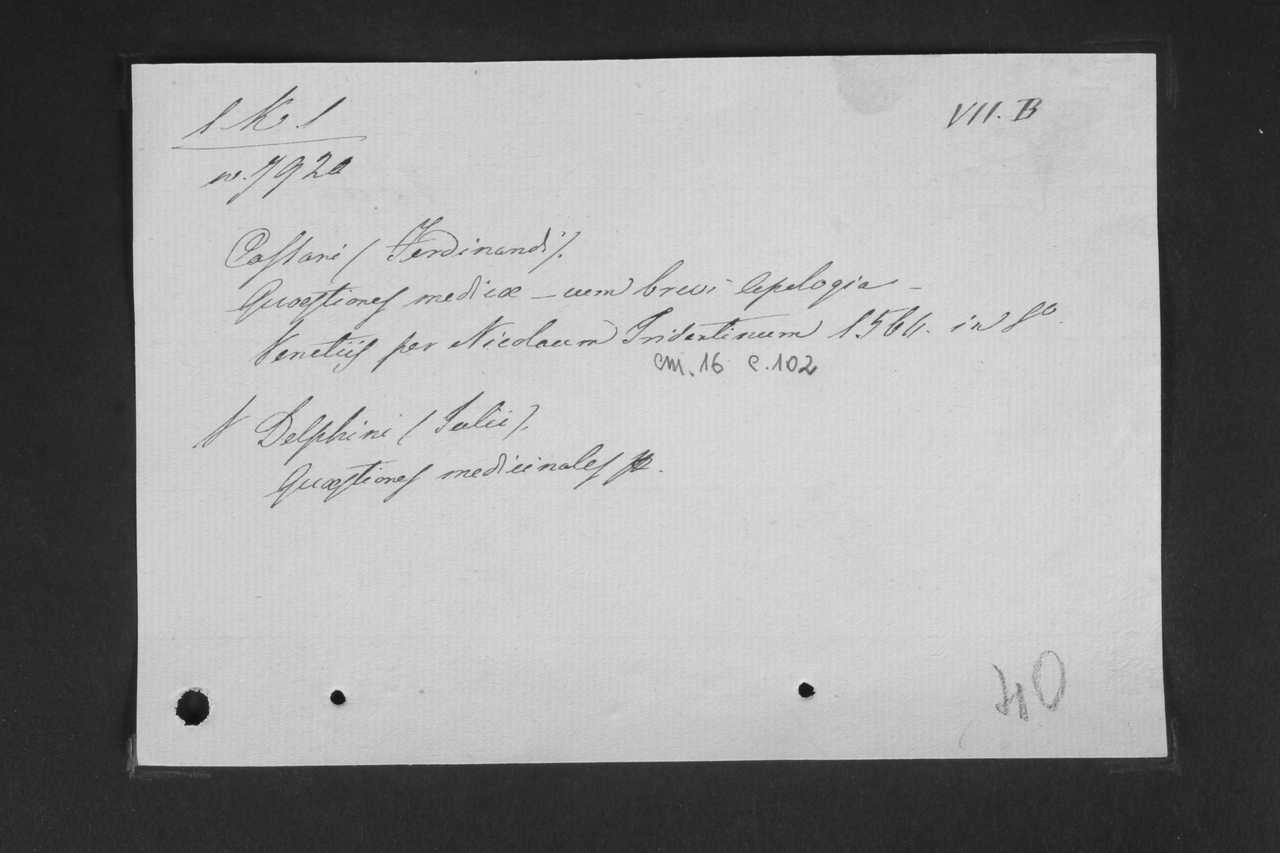 1 K. 1
VII. B
nr. 7920
Castani (Ferdinandi).
Quæstiones medicæ – cum brevi Apologia –
Venetiis per Nicolaum Tridentinum 1564. in 8º.
cm. 16 c. 102
V Delphini (Julii).
Quæstiones medicinales
40